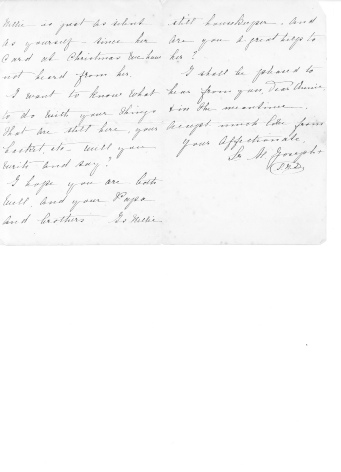 Nellie is just as silent
as yourself - since her
Card at Christmas we have
not heard from her.
I want to know what
to do with your things
that are still here, your
basket etc. Will you
write and say?
I hope you are both
well, and your Papa
and brothers Is Nellie
still housekeeper. And
are you a great help to
her?
I shall be pleased to
hear from you, Dear Annie,
& in the meantime
accept much love from
your Affectionate
Sr. M. Joseph